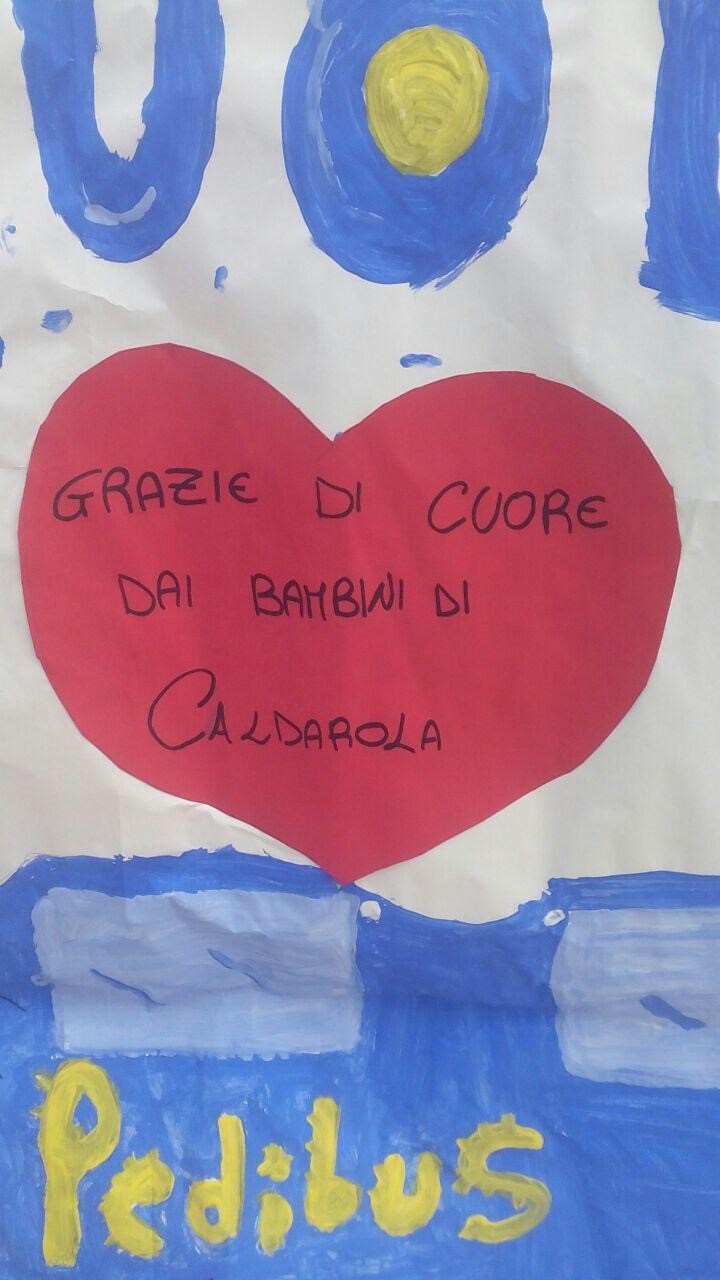 UOI
GRAZIE DI CUORE
DAI BAMBINI DI
CALDAROLA
Pedibus